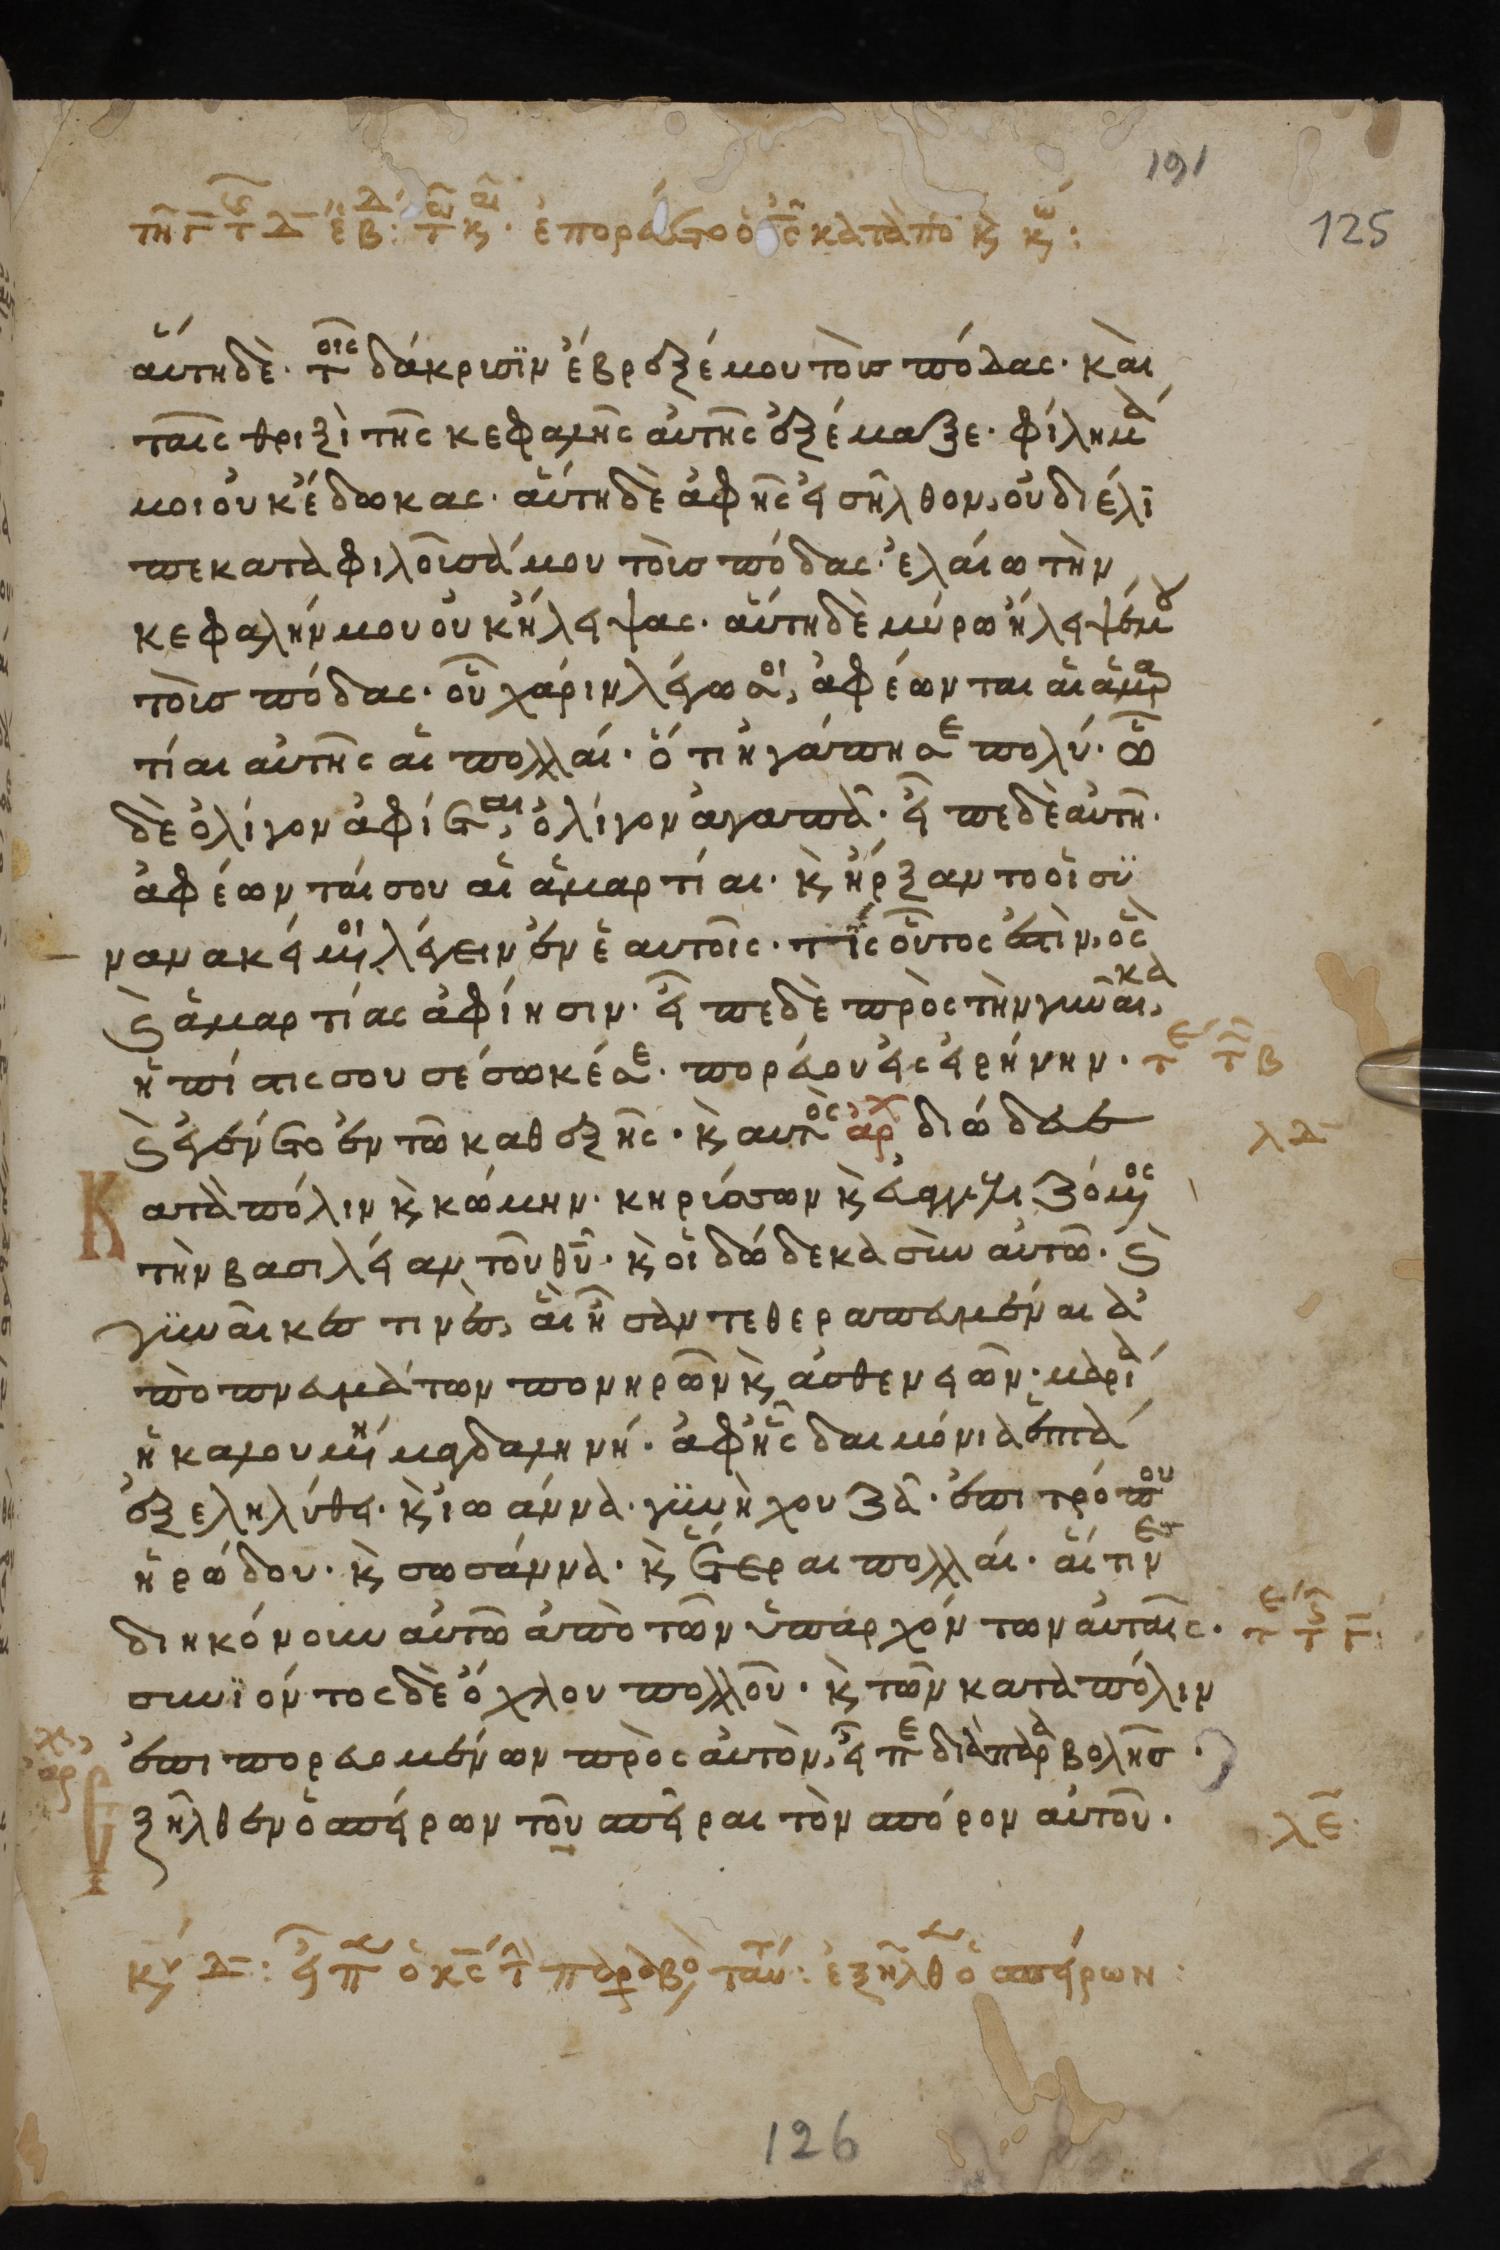 191
125
αὕτη δὲ. τοῖς δάκρισϊν ἔβρεξέ μου τοὺς πόδας. καὶ
ταῖς θριξὶ τῆς κεφαλῆς αὐτῆς ἐξέμαξε. φίλημά
μοι οὐκ ἔδωκας. αὕτη δὲ ἀφ ἧς εἰσῆλθον, οὐ διέλι
πε καταφιλοῦσά μου τοὺς πόδας. ἐλαίω τὴν
κεφαλήν μου οὐκ ἤλειψας. αὕτη δὲ μύρω ἤλειψέ μου
τοὺς πόδας. οὗ χάριν λέγω σοι, ἀφέωνται αἱ ἁμαρ
τίαι αὐτῆς αἱ πολλαί. ὅτι ἠγάπησε πολύ. ὧ
δὲ ὀλίγον ἀφίεται, ὀλίγον ἀγαπᾶ. εἶπε δὲ αὐτῆ.
ἀφέωνταί σου αἱ ἁμαρτίαι. κ ἤρξαντο οἱ συ
νανακείμενοι λέγειν ἐν ἑαυτοῖς. τίς οὗτός ἐστιν, ὃς
κ ἁμαρτίας ἀφίησιν. εἶπε δὲ πρὸς τὴν γυναῖκα,
ἡ πίστις σου σέσωκέ σε. πορεύου εἰς εἰρήνην. τε τῆ β
κ ἐγένετο ἐν τῶ καθεξῆς. κ αὐτὸς ἀρχ διώδευε λδ
Κατὰ πόλιν κ κώμην. κηρύσσων κ εὐαγγελιζόμενος
τὴν βασιλείαν τοῦ θυ. κ οἱ δώδεκα σὺν αὐτῶ. κ
γυναῖκές τινες, αἳ ἦσαν τεθεραπευμέναι ἀ
πὸ πνευμάτων πονηρῶν κ ἀσθενειῶν. μαρία
ἡ καλουμένη μαγδαληνή. ἀφ ἧς δαιμόνια ἑπτὰ
ἐξεληλύθει. κ ἰωάννα. γυνὴ χουζᾶ. ἐπιτρόπου
ἡρώδου. κ σωσάννα. κ ἕτεραι πολλαί. αἵτινες
διηκόνουν αὐτῶ ἀπὸ τῶν ὑπαρχόντων αὐταῖς.
συνϊόντος δὲ ὄχλου πολλοῦ. κ τῶν κατὰ πόλιν
ἐπιπορευομένων πρὸς αὐτὸν, εἶπε διὰ παραβολῆς.
ἀρχ ἐξῆλθεν ὁ σπείρων τοῦ σπεῖραι τὸν σπόρον αὐτοῦ. λε
κυ δ: εἶπ ὁ κς τ παραβο ταύτ: ἐξῆλθ ὁ σπείρων:
126